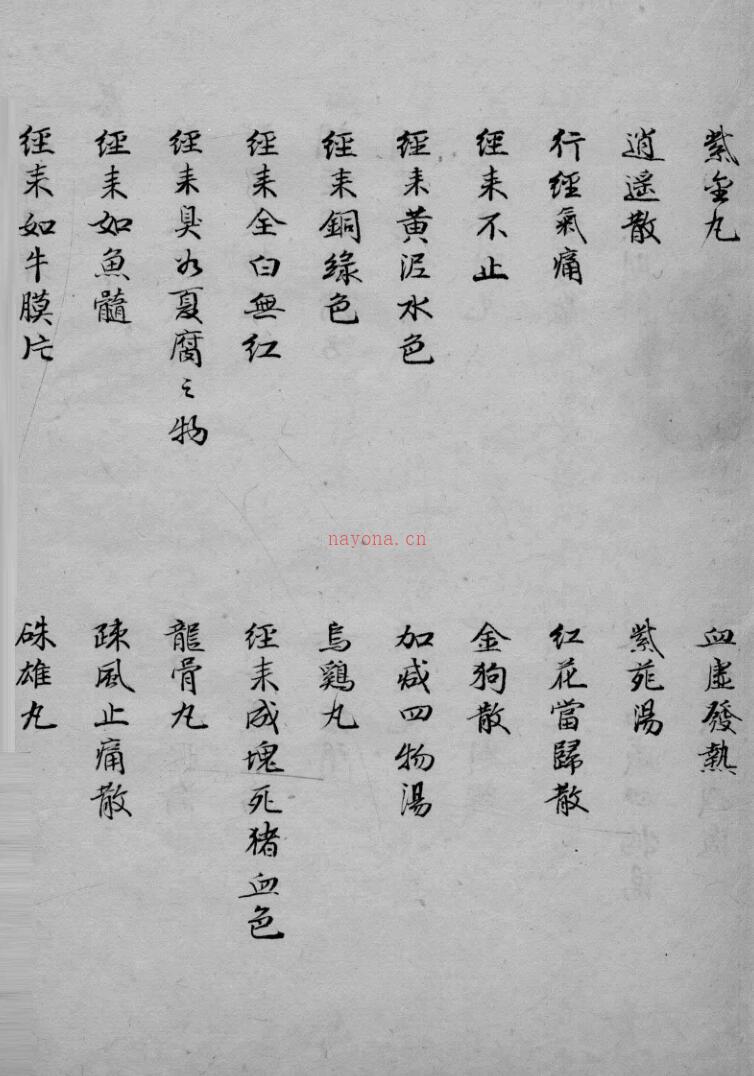 紫金丸
血虛發熱
逍遥散
紫苑湯
行經氣痛
紅花當歸散
經来不止
金狗散
經来黄泥水色
加减四物湯
經来銅綠色
烏鷄丸
經来全白無紅
經来成塊死猪血色
經来臭如夏腐之物
龍骨丸
經来如魚髓
疎風止痛散
經来如牛膜片
硃雄丸
nayona.cn